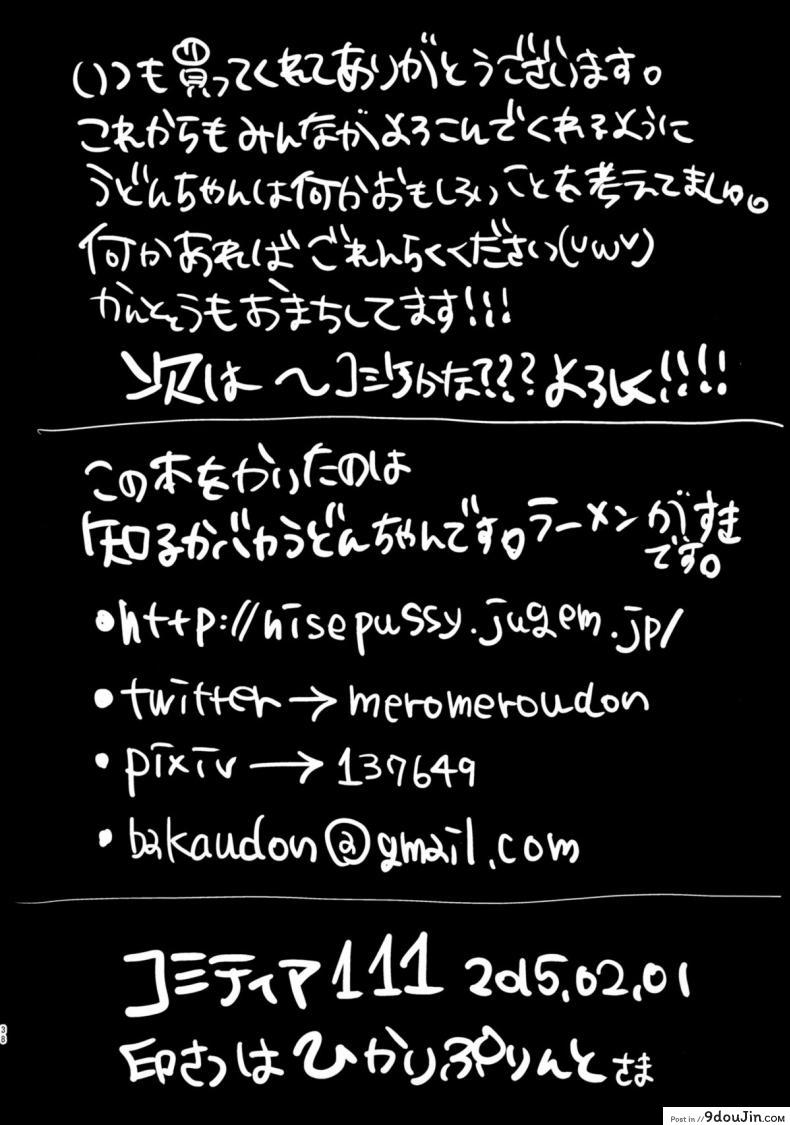 いつも買ってくれてありがとうございます。
これからもみんながよろこんでくれるように
うどんちゃんは何かおもしろいことを考えてましゅ。
何かあればごれんらくください(UωU)
かんそうもおまちしてます!!!
次は〜コミケかな???よろしく!!!!
この本をかいたのは
知るかバカうどんちゃんです。ラーメンがすき
です。
●http://nisepussy.jugem.jp/
●twitter→meromeroudon
●pixiv→137649
●bakaudon@gmail.com
コミティア111 2015.02.01
印さつはひかりぷりんとさま
38
Post in // 9douJin.com